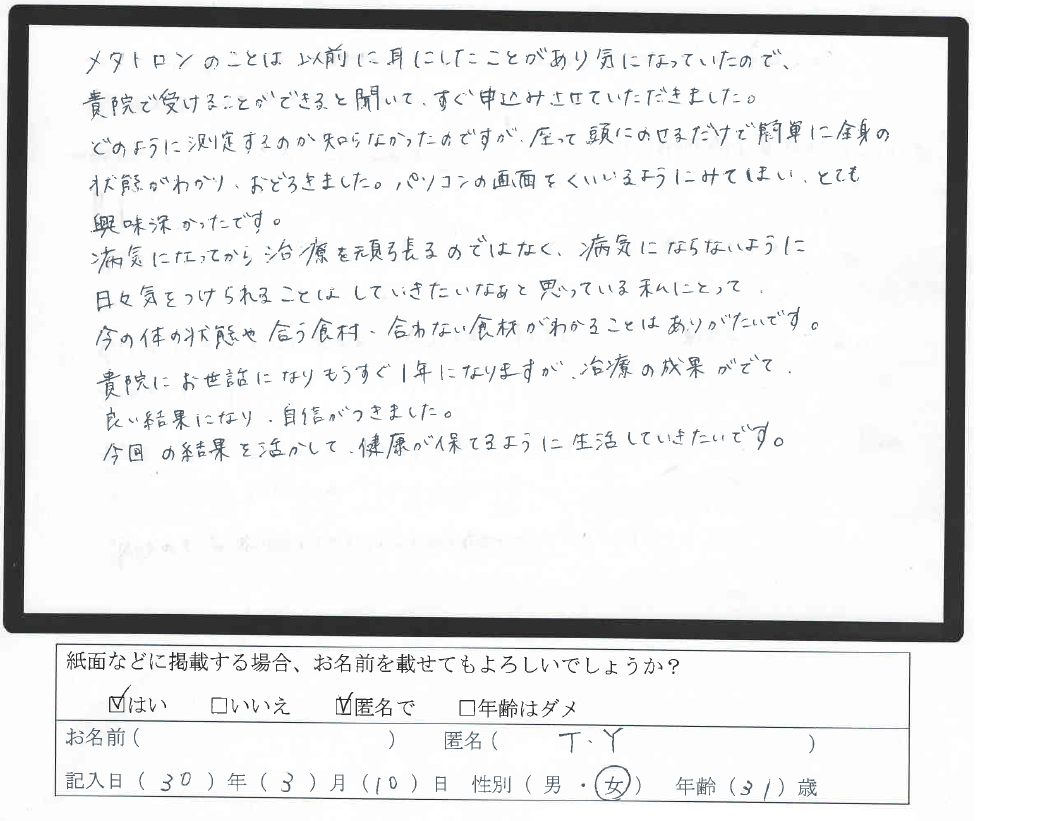 メタトロンのことは以前に耳にしたことがあり気になっていたので、
貴院で受けることができると聞いて、すぐ申込みさせていただきました。
どのように測定するのか知らなかったのですが、座って頭にのせるだけで簡単に全身の
状態がわかり、おどろきました。パソコンの画面をくいいるようにみてしまい、とても
興味深かったです。
病気になってから治療を頑張るのではなく、病気にならないように
日々気をつけられることはしていきたいなぁと思っている私にとって、
今の体の状態や合う食材・合わない食材がわかることはありがたいです。
貴院にお世話になりもうすぐ1年になりますが、治療の成果がでて、
良い結果になり、自信がつきました。
今回の結果を活かして、健康が保てるように生活していきたいです。
紙面などに掲載する場合、お名前を載せてもよろしいでしょうか？
☑はい □いいえ ☑匿名で □年齢はダメ
お名前( ) 匿名( T・Y )
記入日(30)年(3)月(10)日 性別(男・女) 年齢(31)歳